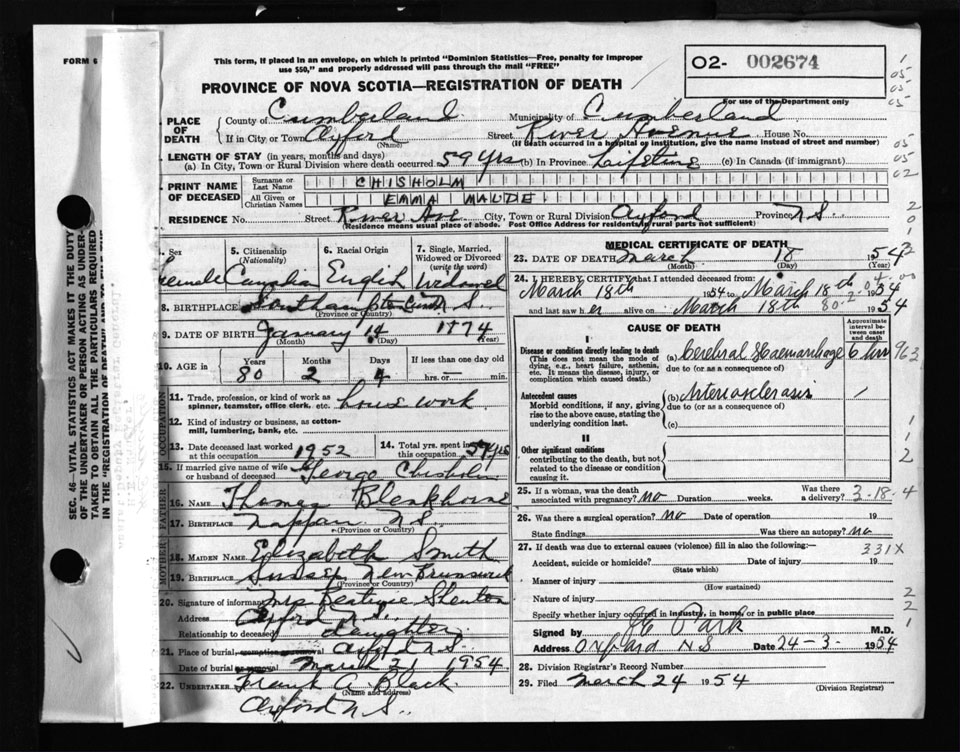 FORM 6
This form, if placed in an envelope, on which is printed "Dominion Statistics—Free, penalty for improper
use $50," and properly addressed will pass through the mail "FREE"
PROVINCE OF NOVA SCOTIA—REGISTRATION OF DEATH
O2- 002674
For use of the Department only
PLACE OF DEATH
County of Cumberland Municipality of Cumberland
If in City or Town Oxford (Name) Street River Avenue House No.
(If death occurred in a hospital or institution, give the name instead of street and number)
LENGTH OF STAY (in years, months and days)
(a) In City, Town or Rural Division where death occurred 59 yrs (b) In Province Lifetime (c) In Canada (if immigrant)
PRINT NAME OF DECEASED
Surname or Last Name CHISHOLM
All Given or Christian Names EMMA MAUDE
RESIDENCE No. Street River Ave City, Town or Rural Division Oxford Province N.S.
(Residence means usual place of abode. Post Office Address for residents in rural parts not sufficient)
4. Sex Female
5. Citizenship (Nationality) Canadian
6. Racial Origin English
7. Single, Married, Widowed or Divorced (write the word) Widowed
8. BIRTHPLACE Southampton N.S.
(Province or Country)
9. DATE OF BIRTH January 14 1874
(Month) (Day) (Year)
10. AGE in Years 80 Months 2 Days 4 If less than one day old hrs. or min.
OCCUPATION
11. Trade, profession, or kind of work as spinner, teamster, office clerk, etc. house work
12. Kind of industry or business, as cotton-mill, lumbering, bank, etc.
13. Date deceased last worked at this occupation 1952
14. Total yrs. spent in this occupation 57 yrs
15. If married give name of wife or husband of deceased George Chisholm
FATHER
16. NAME Thomas Blenkhorne
17. BIRTHPLACE Nappan N.S.
(Province or Country)
MOTHER
18. MAIDEN NAME Elizabeth Smith
19. BIRTHPLACE Sussex New Brunswick
(Province or Country)
20. Signature of informant Mrs Beatrice Shenton
Address Oxford N.S.
Relationship to deceased daughter
21. Place of burial, cremation or removal Oxford N.S.
Date of burial or removal March 21 1954
22. UNDERTAKER Frank A Black
(Name and address)
Oxford N.S.
MEDICAL CERTIFICATE OF DEATH
23. DATE OF DEATH March 18 1954
(Month) (Day) (Year)
24. I HEREBY CERTIFY that I attended deceased from:
March 18th 1954 to March 18th 1954
and last saw her alive on March 18th 1954
CAUSE OF DEATH
Approximate interval between onset and death
I
Disease or condition directly leading to death
(This does not mean the mode of dying, e.g., heart failure, asthenia, etc. It means the disease, injury, or complication which caused death.)
(a) Cerebral Haemorrhage 6 hrs
due to (or as a consequence of)
Antecedent causes
Morbid conditions, if any, giving rise to the above cause, stating the underlying condition last.
(b) Arteriosclerosis
due to (or as a consequence of)
(c)
II
Other significant conditions
contributing to the death, but not related to the disease or condition causing it.
25. If a woman, was the death associated with pregnancy? No Duration weeks. Was there a delivery? 3-18-4
26. Was there a surgical operation? No Date of operation 19
State findings Was there an autopsy? No
27. If death was due to external causes (violence) fill in also the following:—
331X
Accident, suicide or homicide? Date of injury 19
(State which)
Manner of injury
(How sustained)
Nature of injury
Specify whether injury occurred in industry, in home, or in public place
Signed by Park M.D.
Address Oxford N S Date 24-3- 1954
28. Division Registrar's Record Number
29. Filed March 24 1954
(Division Registrar)
SEC. 46—VITAL STATISTICS ACT MAKES IT THE DUTY
OF THE UNDERTAKER OR PERSON ACTING AS UNDER-
TAKER TO OBTAIN ALL THE PARTICULARS REQUIRED
IN THE "REGISTRATION OF DEATH" AND TO FILE THE